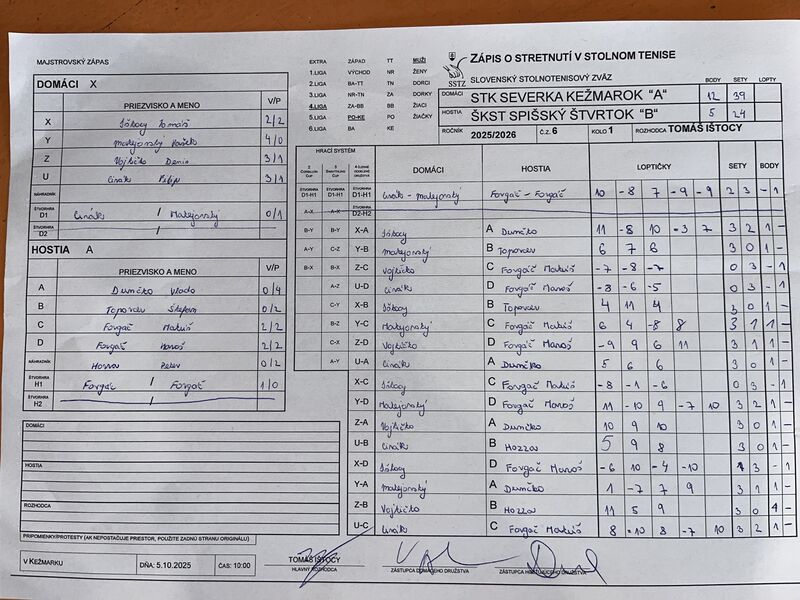 MAJSTROVSKÝ ZÁPAS
DOMÁCI X
PRIEZVISKO A MENO V/P
X Tomáš 2/2
Y Matejovský 4/0
Z Vojtičko Denis 3/1
U Cinák Filip 3/1
NÁHRADNÍK
ŠTVORHRA D1 Cinák / Matejovský 0/1
ŠTVORHRA D2 /
HOSTIA A
PRIEZVISKO A MENO V/P
A Dumčko Vlado 0/4
B Toporcer Štefan 0/2
C Forgáč Matúš 2/2
D Forgáč 2/2
NÁHRADNÍK Peter 0/2
ŠTVORHRA H1 Forgáč / Forgáč 1/0
ŠTVORHRA H2 /
DOMÁCI
HOSTIA
ROZHODCA
PRIPOMIENKY/PROTESTY (AK NEPOSTAČUJE PRIESTOR, POUŽITE ZADNÚ STRANU ORIGINÁLU)
V KEŽMARKU DŇA: 5.10.2025 ČAS: 10:00
EXTRA ZÁPAD TT MUŽI
1.LIGA VÝCHOD NR ŽENY
2.LIGA BA-TT TN DORCI
3.LIGA NR-TN ZA DORKY
4.LIGA ZA-BB BB ŽIACI
5.LIGA PO-KE PO ŽIAČKY
6.LIGA BA KE
SSTZ
ZÁPIS O STRETNUTÍ V STOLNOM TENISE
SLOVENSKÝ STOLNOTENISOVÝ ZVÄZ
BODY SETY LOPTY
DOMÁCI STK SEVERKA KEŽMAROK "A" 12 39
HOSTIA ŠKST SPIŠSKÝ ŠTVRTOK "B" 5 24
ROČNÍK 2025/2026 Č.Z. 6 KOLO 1 ROZHODCA TOMÁŠ IŠTOCY
HRACÍ SYSTÉM
DOMÁCI HOSTIA LOPTIČKY SETY BODY
ŠTVORHRA D1-H1 ŠTVORHRA D1-H1 ŠTVORHRA D1-H1 Cinák - Matejovský Forgáč - Forgáč 10 -8 7 -9 -9 2 3 - 1
A-X A-X ŠTVORHRA D2-H2
B-Y B-Y X-A A Dumčko 11 -8 10 -3 7 3 2 1 -
A-Y C-Z Y-B Matejovský B Toporcer 6 7 6 3 0 1 -
B-X B-X Z-C Vojtičko C Forgáč Matúš -7 -8 -7 0 3 - 1
A-Z U-D Cinák D Forgáč -8 -6 -5 0 3 - 1
C-Y X-B B Toporcer 4 11 4 3 0 1 -
B-Z Y-C Matejovský C Forgáč Matúš 6 4 -8 8 3 1 1 -
C-X Z-D Vojtičko D Forgáč -9 9 6 11 3 1 1 -
A-Y U-A Cinák A Dumčko 5 6 6 3 0 1 -
X-C C Forgáč Matúš -8 -1 -6 0 3 - 1
Y-D Matejovský D Forgáč 11 -10 9 -7 10 3 2 1 -
Z-A Vojtičko A Dumčko 10 9 10 3 0 1 -
U-B Cinák B 5 9 8 3 0 1 -
X-D D Forgáč -6 10 -4 -10 1 3 - 1
Y-A Matejovský A Dumčko 1 -7 7 9 3 1 1 -
Z-B Vojtičko B 11 5 9 3 0 1 -
U-C Cinák C Forgáč Matúš 8 -10 8 -7 10 3 2 1 -
TOMÁŠ IŠTOCY
HLAVNÝ ROZHODCA
ZÁSTUPCA DOMÁCEHO DRUŽSTVA
ZÁSTUPCA HOSŤUJÚCEHO DRUŽSTVA